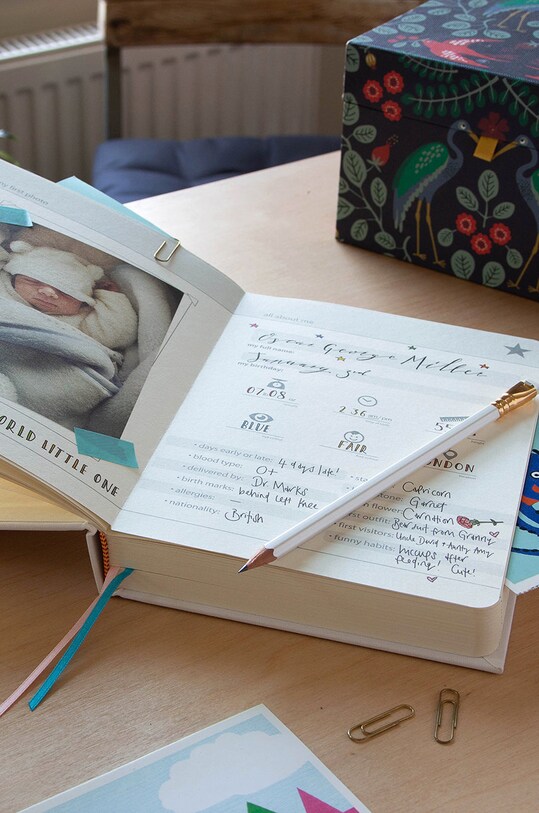 my first photo
WORLD LITTLE ONE
all about me
my full name:
Oscar George Miller
my birthday:
January 3rd
07lb 08oz
2:36 am/pm
BLUE
FAIR
LONDON
• days early or late: 4 days late!
• blood type: O+
• delivered by: Dr. Marks
• birth marks: behind Left Knee
• allergies:
• nationality: British
Capricorn
Garnet
Carnation
Bearsuit from Granny
first visitors: Uncle David + Aunty Amy
• funny habits: hiccups after
feeding! Cute!